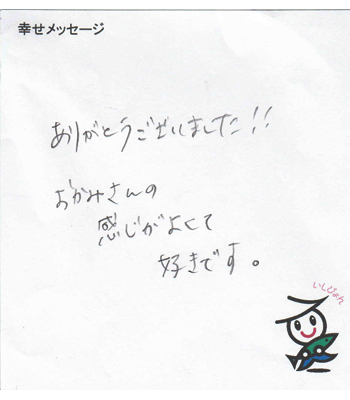 幸せメッセージ
ありがとうございました!!
おかみさんの
感じがよくて
好きです。
いしぴょん